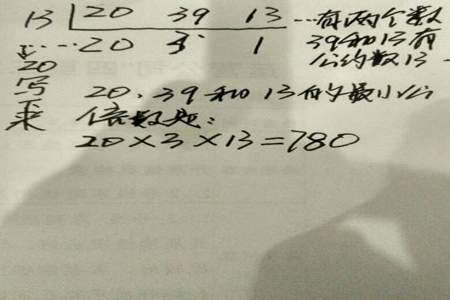 13 20 39 13 …有两个数
…20 3 1 39和13有
公约数13
20写下来
20、39和13的最小公
倍数是：
20×3×13=780